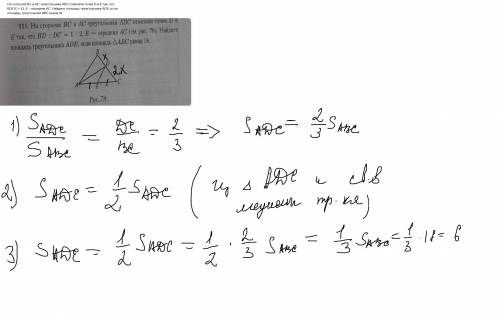 На сторонах BC и AC треугольника ABC отмечены точки D и E так, что
BD:DC = 1:2, E - середина AC. Найдите площадь треугольника ADE, если
площадь треугольника ABC равна 18.
На сторонах BC и AC треугольника ABC отмечены точки D и
E так, что BD : DC = 1 : 2, E — середина AC (см. рис. 78). Найдите
площадь треугольника ADE, если площадь △ABC равна 18.
B
x
D
2x
A E C
Рис. 78
1) S ADC / S ABC = DC / BC = 2/3 => S ADC = 2/3 S ABC
2) S ADE = 1/2 S ADC (из △ ADC и
медиана тр-ка)
3) S ADE = 1/2 S ADC = 1/2 · 2/3 S ABC = 1/3 S ABC = 1/3 · 18 = 6